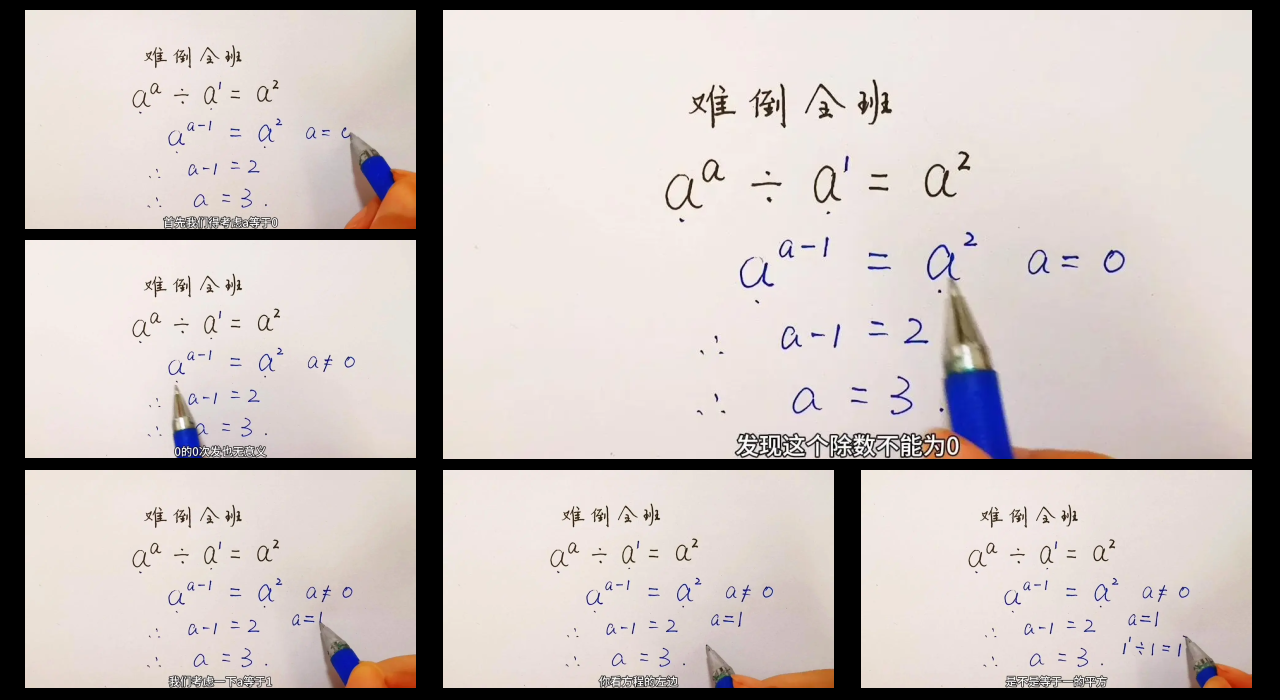 难倒全班
aᵃ ÷ a¹ = a²
aᵃ⁻¹ = a² a=
∴ a-1 = 2
∴ a = 3.
首先我们得考虑a等于0
难倒全班
aᵃ ÷ a¹ = a²
aᵃ⁻¹ = a² a = 0
∴ a-1 = 2
∴ a = 3.
发现这个除数不能为0
难倒全班
aᵃ ÷ a¹ = a²
aᵃ⁻¹ = a² a ≠ 0
∴ a-1 = 2
∴ a = 3.
0的0次发也无意义
难倒全班
aᵃ ÷ a¹ = a²
aᵃ⁻¹ = a² a ≠ 0
a=1
∴ a-1 = 2
∴ a = 3.
我们考虑一下a等于1
难倒全班
aᵃ ÷ a¹ = a²
aᵃ⁻¹ = a² a ≠ 0
a=1
∴ a-1 = 2
∴ a = 3.
你看方程的左边
难倒全班
aᵃ ÷ a¹ = a²
aᵃ⁻¹ = a² a ≠ 0
a=1
∴ a-1 = 2
1¹÷1=1
∴ a = 3.
是不是等于一的平方